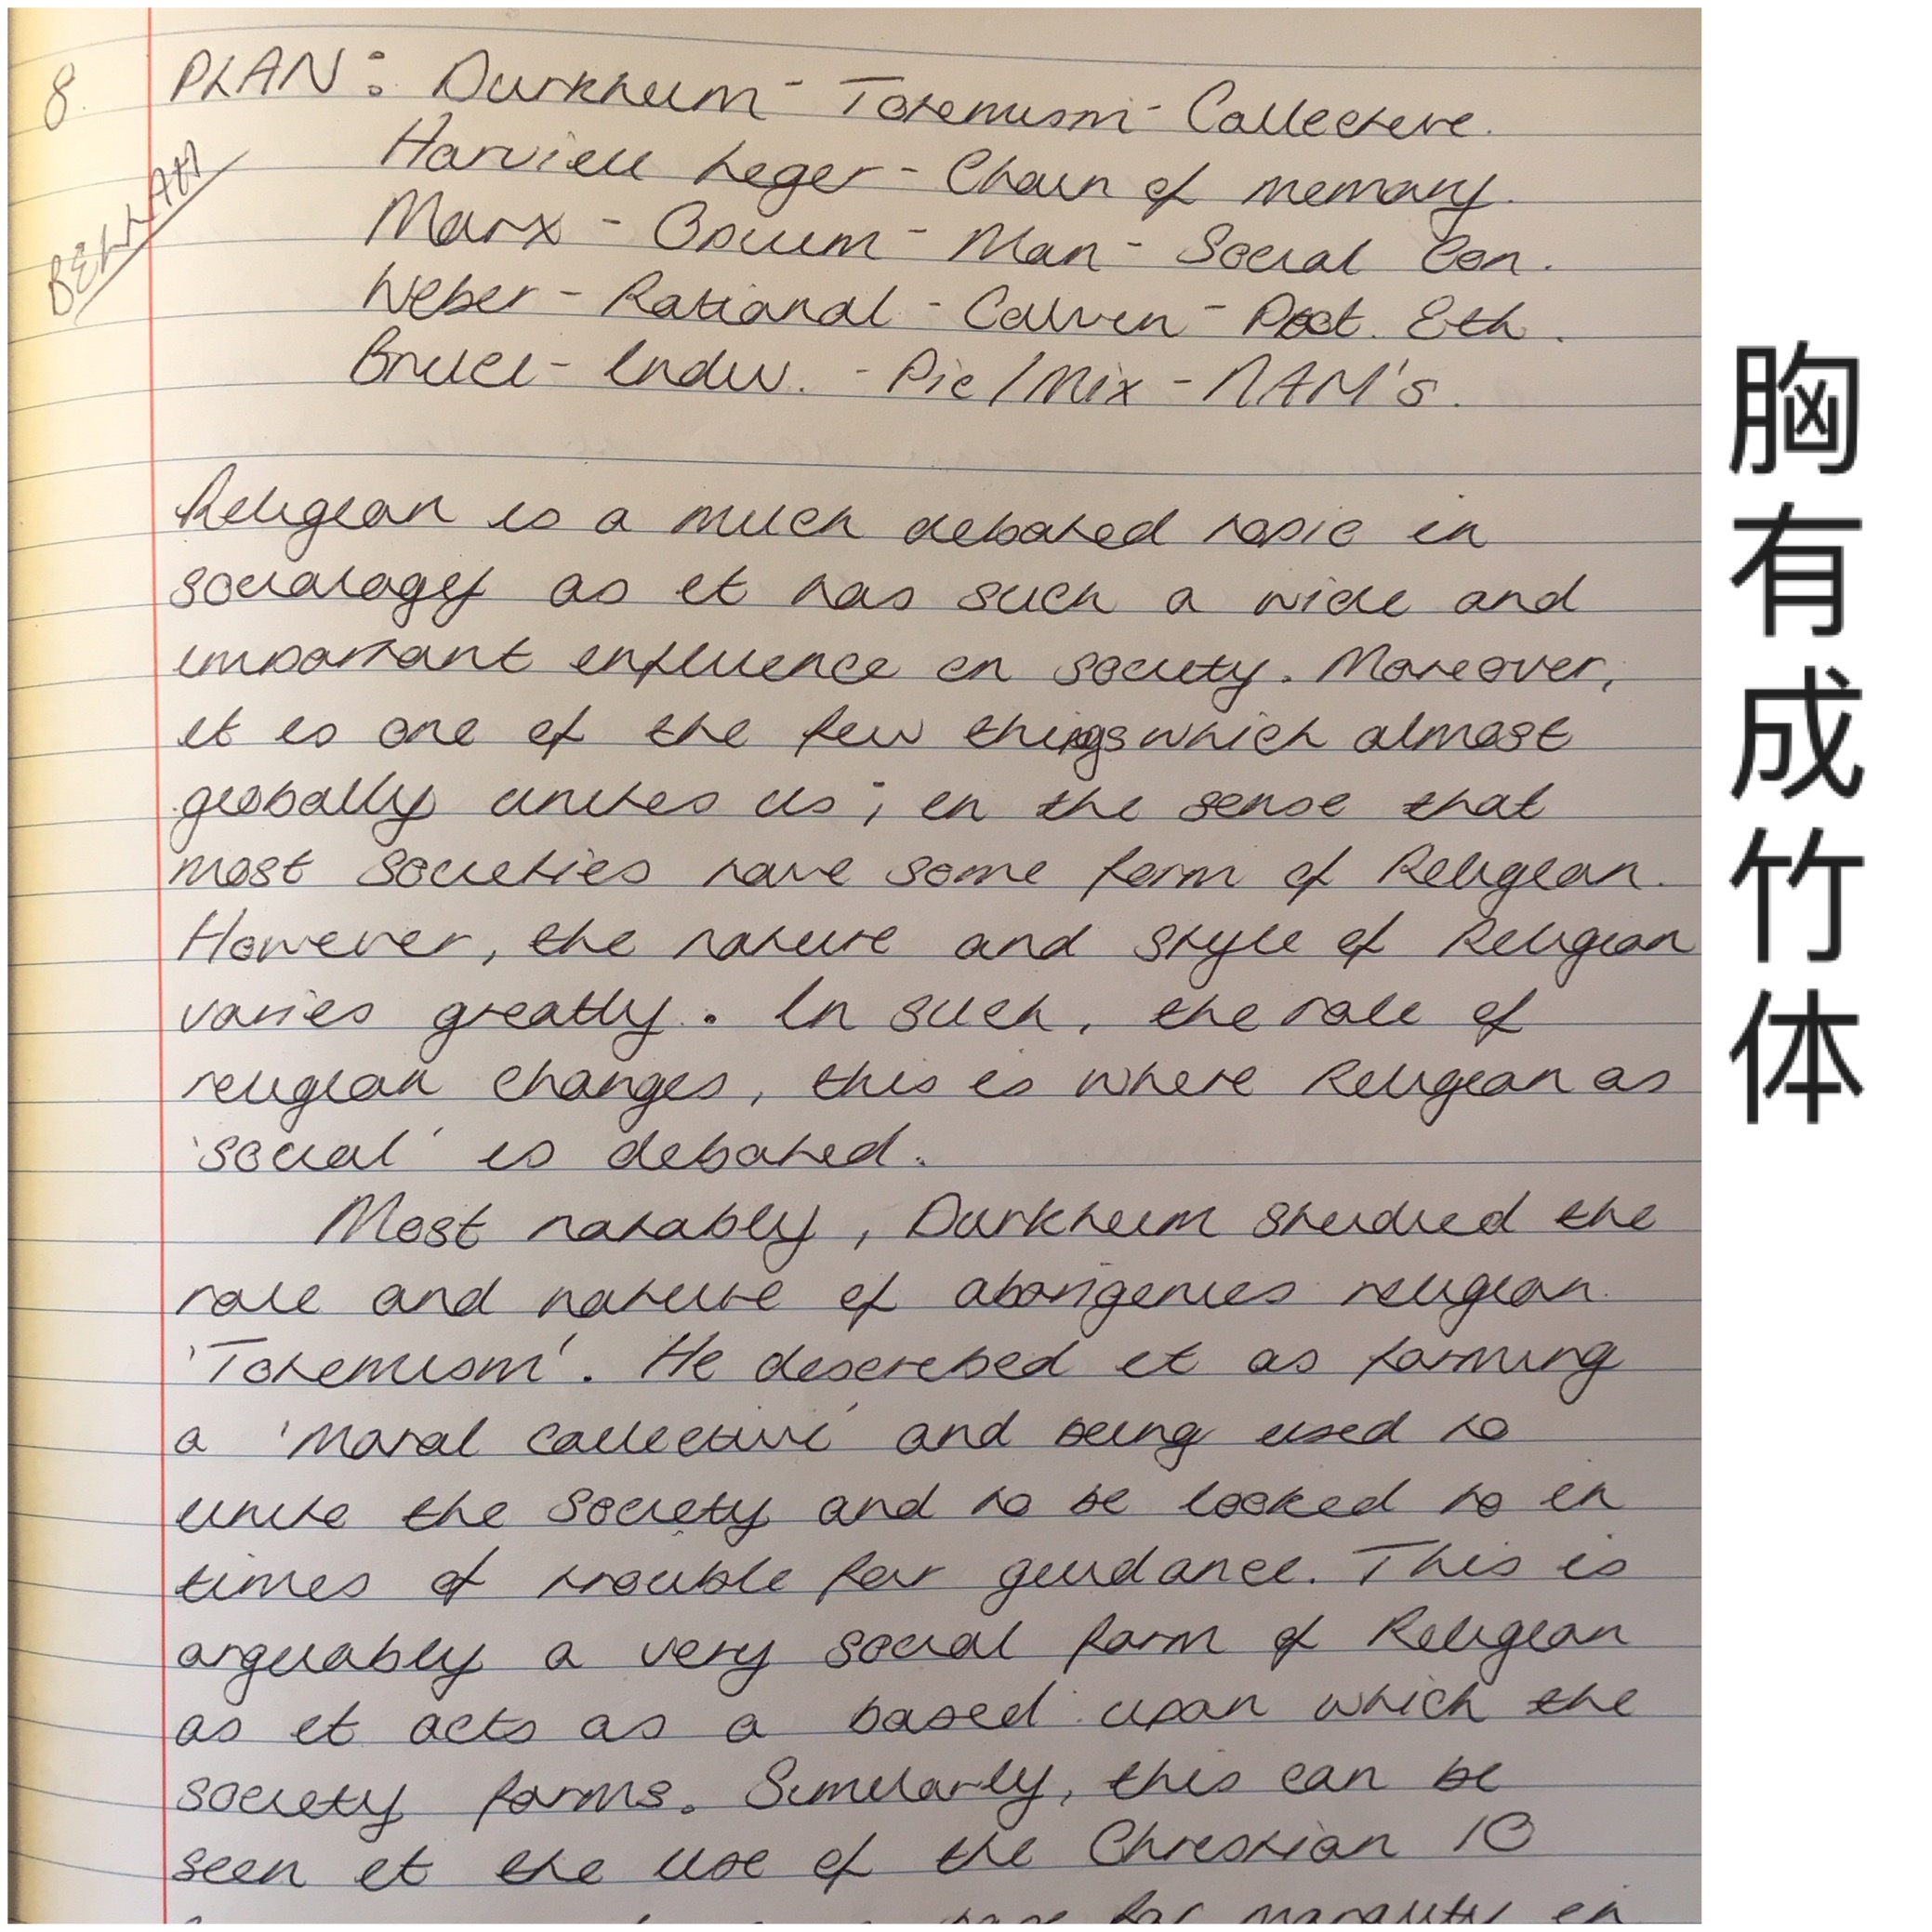 8. PLAN: Durkheim - Totemism - Collective.
BELLAH
Harvieu Leger - Chain of memory.
Marx - Opium - Man - Social Con.
Weber - Rational - Calvin - Prot. Eth.
Bruce - Indiv. - Pic/Mix - NAM's.
Religion is a much debated topic in
sociology as it has such a wide and
important influence on society. Moreover,
it is one of the few things which almost
globally unites us; in the sense that
most societies have some form of Religion.
However, the nature and style of Religion
varies greatly. In such, the role of
religion changes, this is where Religion as
'social' is debated.
Most notably, Durkheim studied the
role and nature of aborigenies religion
'Totemism'. He described it as forming
a 'moral collective' and being used to
unite the society and to be looked to in
times of trouble for guidance. This is
arguably a very social form of Religion
as it acts as a based upon which the
society forms. Similarly, this can be
seen it the use of the Christian 10
for morality in
胸有成竹体